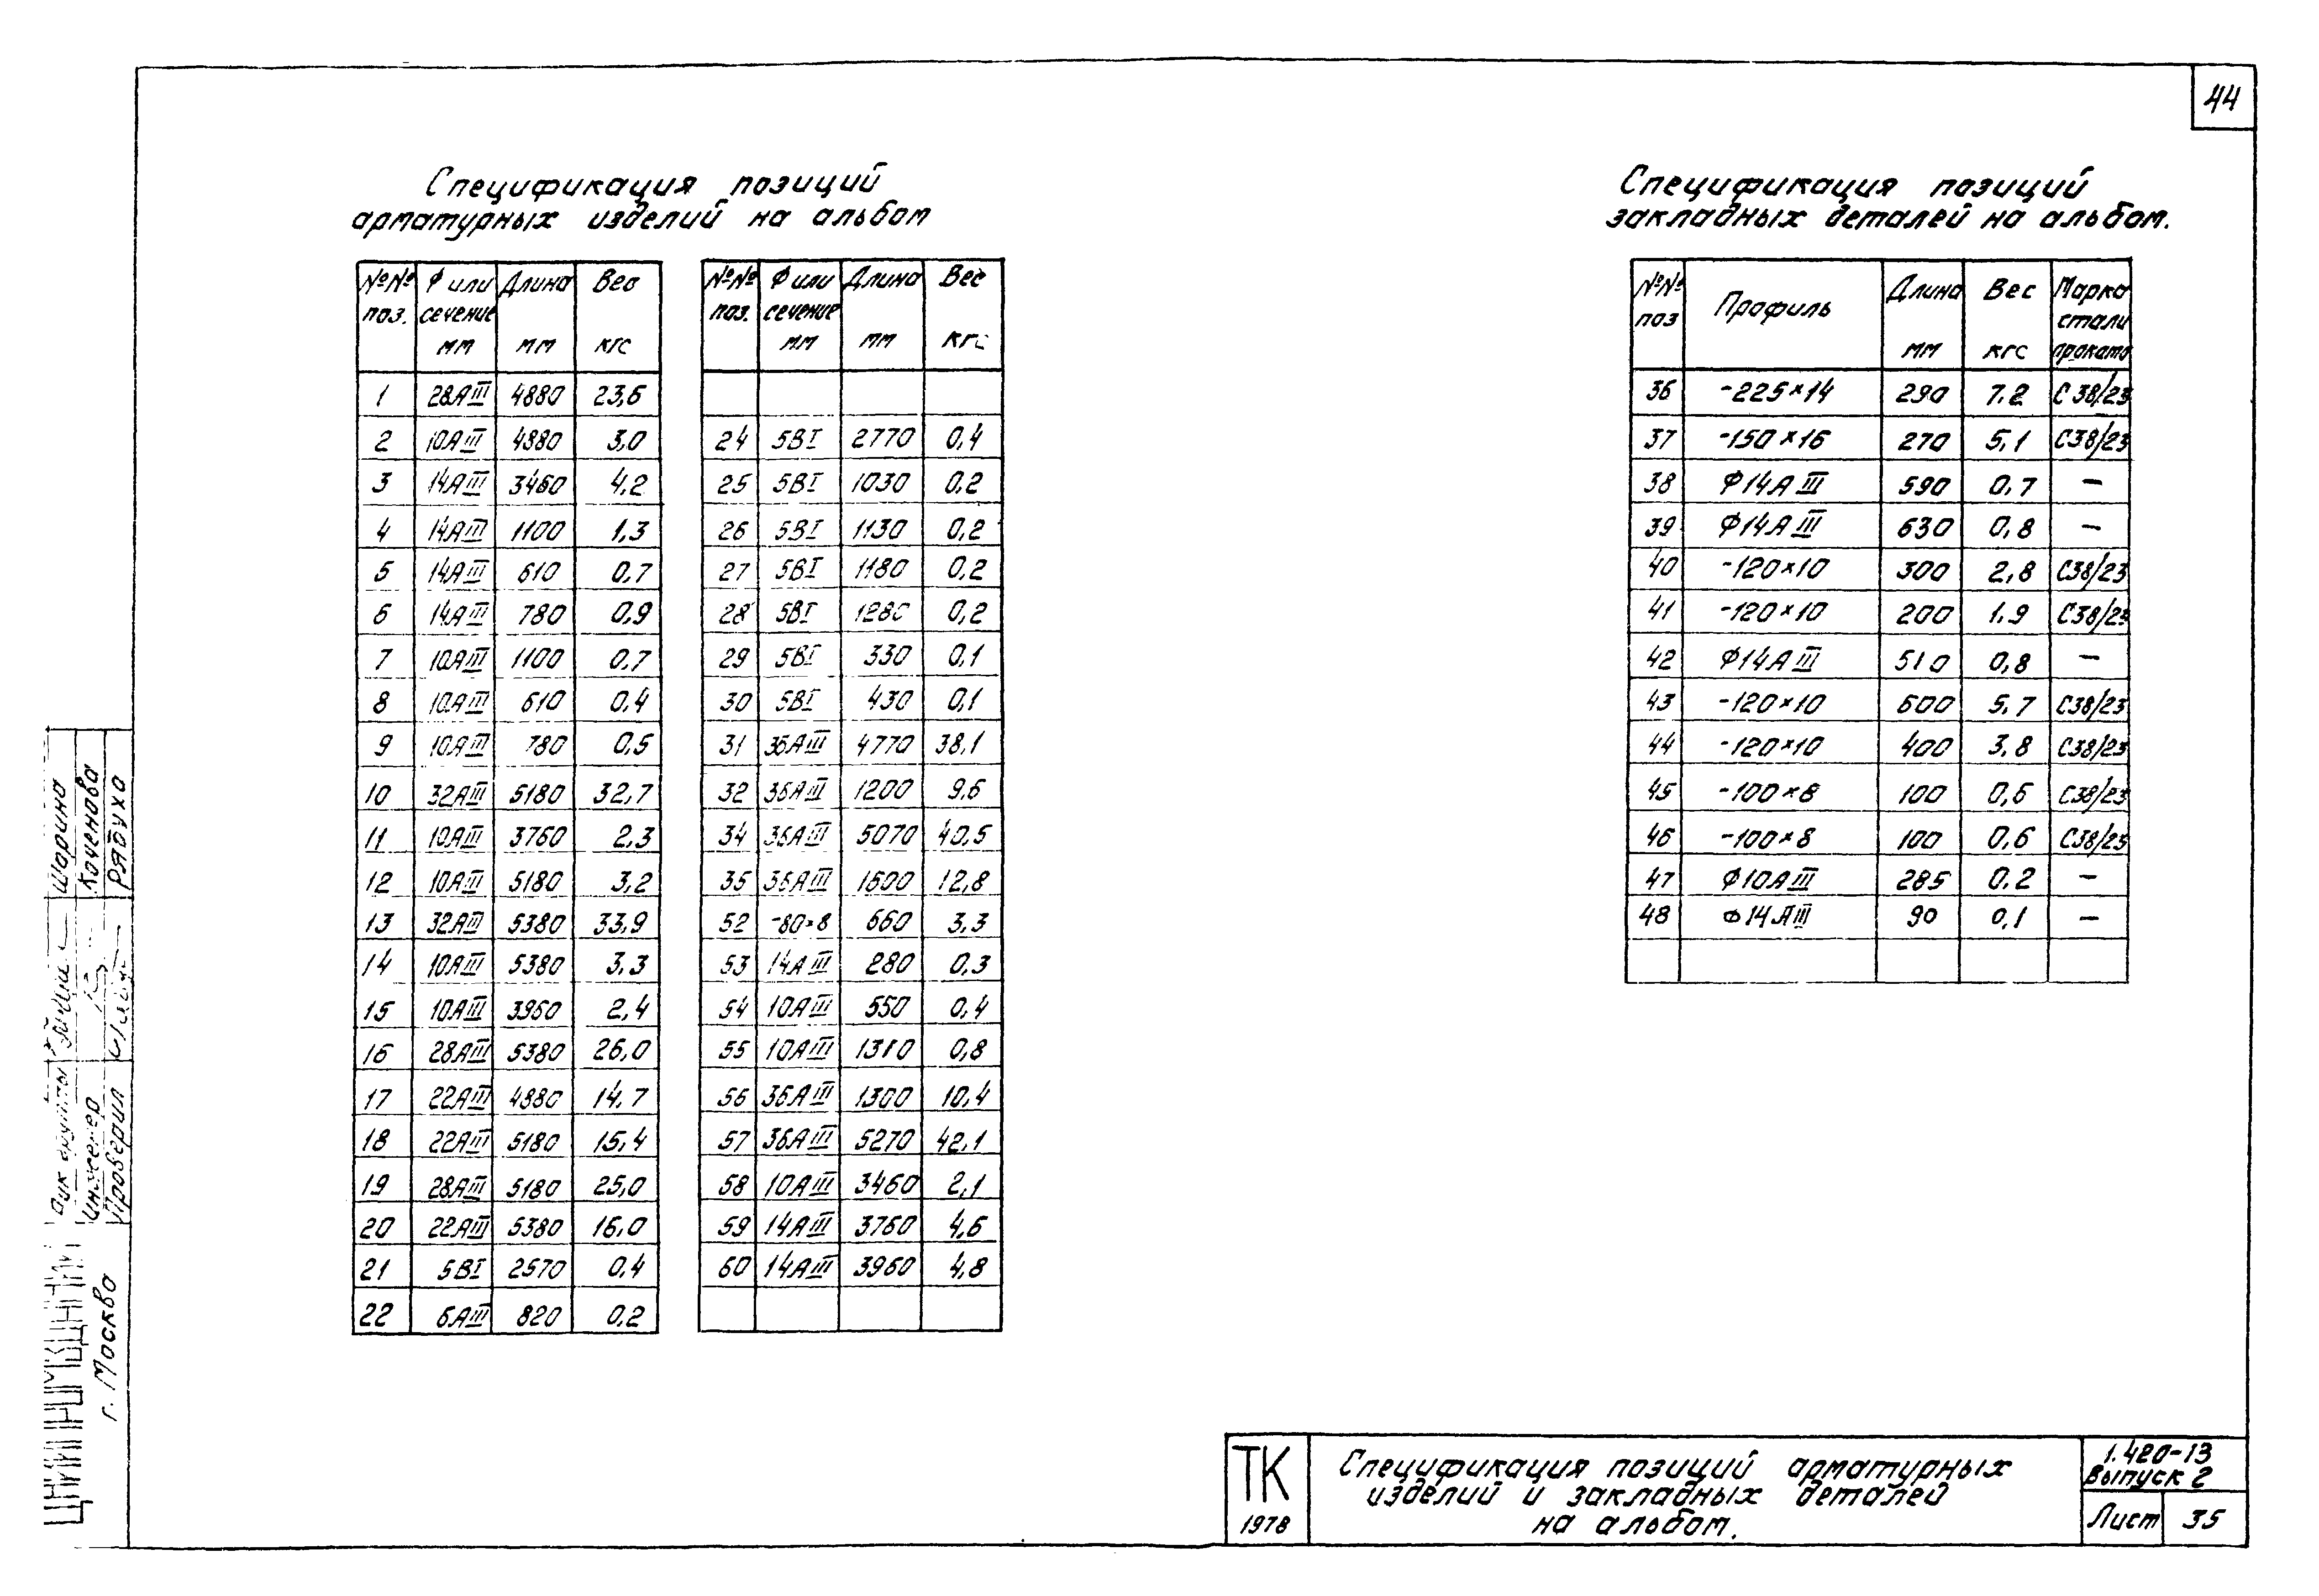 44
Спецификация позиций
арматурных изделий на альбом
№№ поз. Ф или сечение мм Длина мм Вес кгс
1 28АIII 4880 23,6
2 10АIII 4880 3,0
3 14АIII 3460 4,2
4 14АIII 1100 1,3
5 14АIII 610 0,7
6 14АIII 780 0,9
7 10АIII 1100 0,7
8 10АIII 610 0,4
9 10АIII 780 0,5
10 32АIII 5180 32,7
11 10АIII 3760 2,3
12 10АIII 5180 3,2
13 32АIII 5380 33,9
14 10АIII 5380 3,3
15 10АIII 3960 2,4
16 28АIII 5380 26,0
17 22АIII 4880 14,7
18 22АIII 5180 15,4
19 28АIII 5180 25,0
20 22АIII 5380 16,0
21 5ВI 2570 0,4
22 6АIII 820 0,2
№№ поз. Ф или сечение мм Длина мм Вес кгс
24 5ВI 2770 0,4
25 5ВI 1030 0,2
26 5ВI 1130 0,2
27 5ВI 1180 0,2
28 5ВI 1280 0,2
29 5ВI 330 0,1
30 5ВI 430 0,1
31 36АIII 4770 38,1
32 36АIII 1200 9,6
34 36АIII 5070 40,5
35 36АIII 1600 12,8
52 -80×8 660 3,3
53 14АIII 280 0,3
54 10АIII 550 0,4
55 10АIII 1310 0,8
56 36АIII 1300 10,4
57 36АIII 5270 42,1
58 10АIII 3460 2,1
59 14АIII 3760 4,6
60 14АIII 3960 4,8
Спецификация позиций
закладных деталей на альбом.
№№ поз Профиль Длина мм Вес кгс Марка стали проката
36 -225×14 290 7,2 С38/23
37 -150×16 270 5,1 С38/23
38 Ф14АIII 590 0,7 —
39 Ф14АIII 630 0,8 —
40 -120×10 300 2,8 С38/23
41 -120×10 200 1,9 С38/23
42 Ф14АIII 510 0,8 —
43 -120×10 600 5,7 С38/23
44 -120×10 400 3,8 С38/23
45 -100×8 100 0,6 С38/23
46 -100×8 100 0,6 С38/23
47 Ф10АIII 285 0,2 —
48 Ф14АIII 90 0,1 —
ТК
1978
Спецификация позиций арматурных
изделий и закладных деталей
на альбом.
1.420-13
Выпуск 2
Лист 35
Рук группы Шарина
Инженер Коченова
Проверил Рябуха
г. Москва